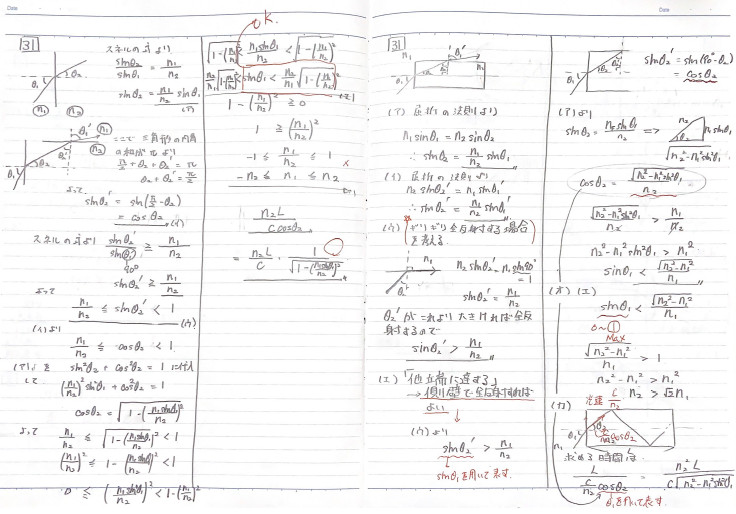 Date
[31]
スネルの式より
sinθ₂/sinθ₁ = n₁/n₂
sinθ₂ = n₁/n₂ sinθ₁
(ア)
θ₁ θ₂
n₁ n₂
ここで 三角形の内角
の和が π より
π/2 + θ₂ + θ₂' = π
θ₂ + θ₂' = π/2
よって
sinθ₂' = sin(π/2 - θ₂)
= cosθ₂ (イ)
スネルの式より sinθ₂'/sinθ₁' ≧ n₁/n₂
90°
sinθ₂' ≧ n₁/n₂
よって
n₁/n₂ ≦ sinθ₂' < 1
(ウ)
(イ)より
n₁/n₂ ≦ cosθ₂ < 1
(ア), を sin²θ₂ + cos²θ₂ = 1 に代入
して
(n₁/n₂)² sin²θ₁ + cos²θ₂ = 1
cosθ₂ = √(1-(n₁sinθ₁/n₂)²)
よって
n₁/n₂ ≦ √(1-(n₁sinθ₁/n₂)²) < 1
(n₁/n₂)² ≦ 1-(n₁sinθ₁/n₂)² < 1
0 ≦ (n₁sinθ₁/n₂)² < 1-(n₁/n₂)²
ok.
√(1-(n₁/n₂)²) < n₁sinθ₁/n₂ < √(1-(n₁/n₂)²)
n₂/n₁ √(1-(n₁/n₂)²) < sinθ₁ < n₂/n₁ √(1-(n₁/n₂)²)
(エ)
1-(n₁/n₂)² ≧ 0
1 ≧ (n₁/n₂)²
-1 ≦ n₁/n₂ ≦ 1
-n₂ ≦ n₁ ≦ n₂
n₂L/c cosθ₂
= n₂L/c · 1/√(1-(n₁sinθ₁/n₂)²)
Date
[31]
(ア) 屈折の法則より
n₁sinθ₁ = n₂sinθ₂
∴ sinθ₂ = n₁/n₂ sinθ₁
(イ) 屈折の法則より
n₂ sinθ₂' = n₁sinθ₁'
∴ sinθ₂' = n₁/n₂ sinθ₁'
(ウ) (ギリギリ全反射する場合
を考える.)
n₂ sinθ₂' = n₁ sin90°
= 1
sinθ₂' = n₁/n₂
θ₂'がこれより大きければ全反
射するので
sinθ₂' > n₁/n₂
(エ) 「他端に達する」
→側壁で全反射すれば
よい
↓
(ウ)より
sinθ₂' > n₁/n₂
sinθ₁を用いて表す.
sinθ₂' = sin(90°-θ₂)
= cosθ₂
(ア)より
sinθ₂ = n₁sinθ₁/n₂ ⇒
n₂ n₁sinθ₁
θ₂
√(n₂²-n₁²sin²θ₁)
cosθ₂ = √(n₂²-n₁²sin²θ₁)/n₂
√(n₂²-n₁²sin²θ₁)/n₂ > n₁/n₂
n₂²-n₁²sin²θ₁ > n₁²
sinθ₁ < √(n₂²-n₁²)/n₁
(オ) (エ)
sinθ₁ < √(n₂²-n₁²)/n₁
0〜1
Max
√(n₂²-n₁²)/n₁ > 1
n₂²-n₁² > n₁²
n₂ > √2 n₁
(カ)
光速 c/n₂
c/n₂ cosθ₂
求める時間は
L/(c/n₂ cosθ₂) = n₂²L/(c√(n₂²-n₁²sin²θ₁))
θ₁を用いて表す.